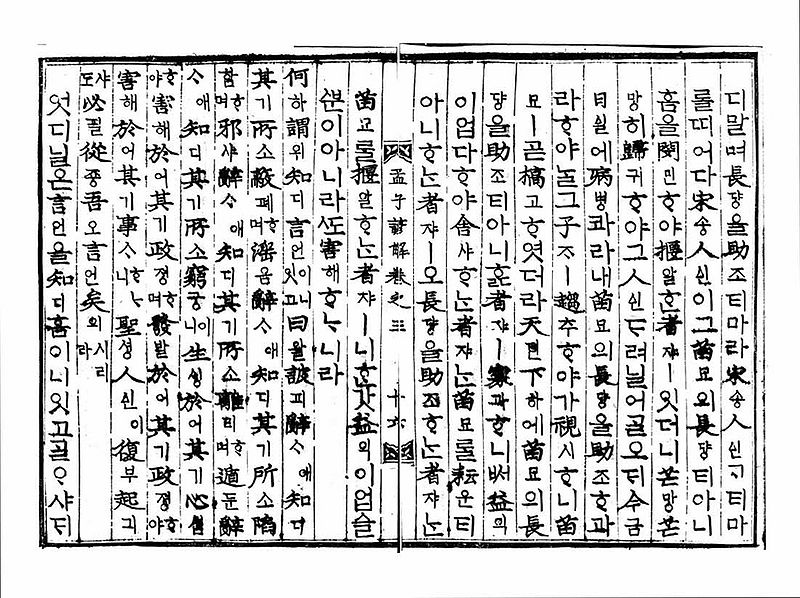 디말며長댱을助조티마라宋송人인ᄀᆞ티마
롤띠어다宋송人인이그苗묘의長댱티아니
홈을閔민ᄒᆞ야揠알ᄒᆞᆫ者쟈ㅣ잇더니芒망芒
망히歸귀ᄒᆞ야그人인ᄃᆞ려닐어ᄀᆞᆯ오ᄃᆡ今금
日일에病병콰라내苗묘의長댱을助조ᄒᆞ과
라ᄒᆞ야ᄂᆞᆯ그子ᄌᆞㅣ趨추ᄒᆞ야가視시ᄒᆞ니苗
묘ㅣ곧槁고ᄒᆞ엿더라天텬下하에苗묘의長
댱을助조티아니ᄒᆞᆯ者쟈ㅣ寡과ᄒᆞ니ᄡᅥ益익
이업다ᄒᆞ야舍샤ᄒᆞᄂᆞᆫ者쟈ᄂᆞᆫ苗묘ᄅᆞᆯ耘운티
아니ᄒᆞᄂᆞᆫ者쟈ㅣ오長댱을助조ᄒᆞᄂᆞᆫ者쟈ᄂᆞᆫ
孟子諺解卷之三 十六
苗묘ᄅᆞᆯ揠알ᄒᆞᄂᆞᆫ者쟈ㅣ니ᄒᆞᆫ갓益익이업슬
ᄲᅮᆫ이아니라ᄯᅩ害해ᄒᆞᄂᆞ니라
何하謂위知디言언이니잇고曰왈詖피辭ᄉᆞ애知디
其기所소蔽폐ᄒᆞ며淫음辭ᄉᆞ애知디其기所소陷
함ᄒᆞ며邪샤辭ᄉᆞ애知디其기所소離리ᄒᆞ며遁둔辭
ᄉᆞ애知디其기所소窮궁이니生ᄉᆡᆼ於어其기心심
ᄒᆞ야害해於어其기政졍ᄒᆞ며發발於어其기政졍ᄒᆞ야
害해於어其기事ᄉᆞᄒᆞᄂᆞ니聖셩人인이復부起긔
샤도必필從죵吾오言언矣의시리라
엇디닐온言언을知디홈이니잇고ᄀᆞᆯᄋᆞ샤ᄃᆡ